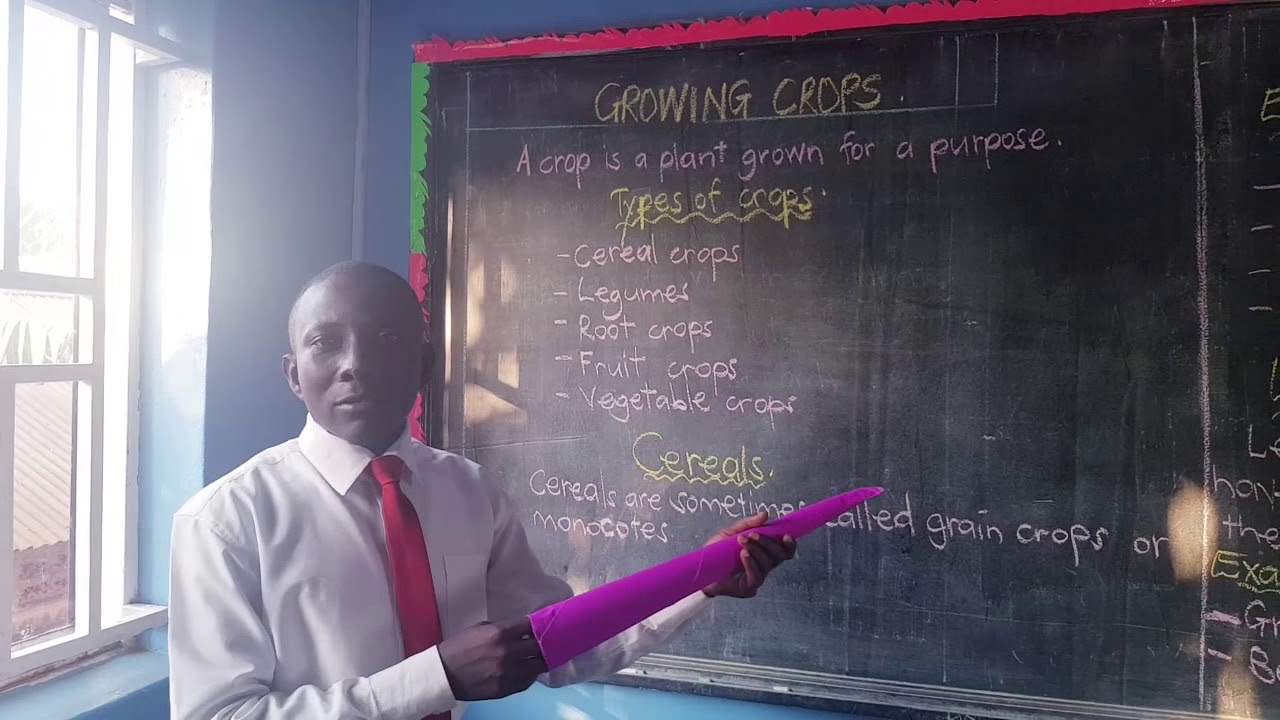 GROWING CROPS.
A crop is a plant grown for a purpose.
Types of crops.
- Cereal crops
- Legumes
- Root crops
- Fruit crops
- Vegetable crops
Cereals.
Cereals are sometimes called grain crops or
monocotes
the